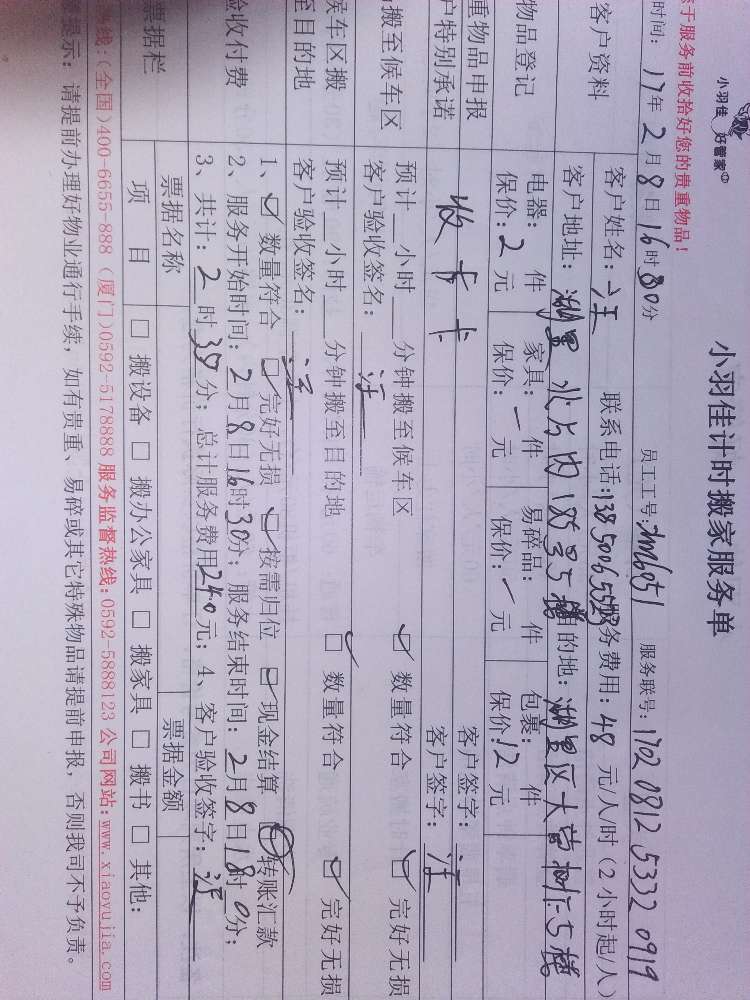 小羽佳 好管家
小羽佳计时搬家服务单
于服务前收拾好您的贵重物品！
时间：17年2月8日16时30分 员工工号：xm6051 服务联号：1702 0812 5332 0919
客户资料 客户姓名：汪 联系电话：13850065523 服务费用：48 元/人/时（2小时起/人）
客户地址：湖里 5楼 目的地：湖里区大 5楼
物品登记 电器： 件 家具： 件 易碎品： 件 包裹： 件
保价：2元 保价：一元 保价：一元 保价：12元
重物品申报 客户签字：汪
户特别承诺 客户签字：汪
搬至候车区 预计__小时__分钟搬至候车区 ☑ 数量符合 ☑ 完好无损
客户验收签名：汪
候车区搬 预计__小时__分钟搬至目的地 ☑ 数量符合 ☑ 完好无损
至目的地 客户验收签名：汪
验收付费 1、☑ 数量符合 ☑ 完好无损 ☑ 按需归位 ☑ 现金结算 转账汇款
2、服务开始时间：2月8日16时30分；服务结束时间：2月8日18时0分；
3、共计：2时30分；总计服务费用240元；4、客户验收签字：汪
票据栏 票据名称 票据金额
项 目 □ 搬设备 □ 搬办公家具 □ 搬家具 □ 搬书 □ 其他：
热线：（全国）400-6655-888（厦门）0592-5178888 服务监督热线：0592-5888123 公司网站：www.xiaoyujia.com
提示：请提前办理好物业通行手续，如有贵重、易碎或其它特殊物品请提前申报，否则我司不予负责。